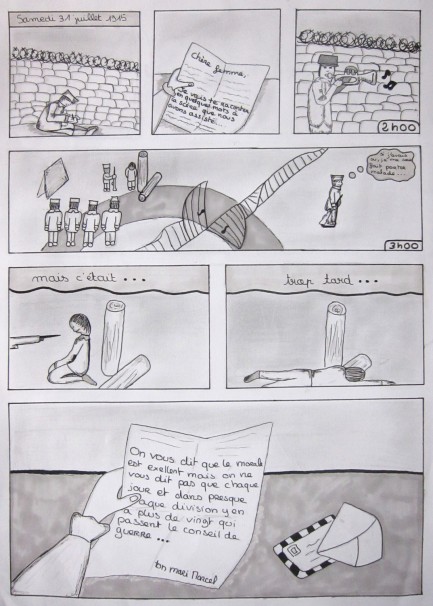 Samedi 31 juillet 1915
Chère femme,
Je vais te raconter
en quelques mots à
la scène que nous
avons assisté.
2h00
3h00
mais c'était...
trop tard...
On vous dit que le morale
est exellent mais on ne
vous dit pas que chaque
jour et dans presque
chaque division y en
a plus de vingt qui
passent le conseil de
guerre ...
Ton mari Marcel